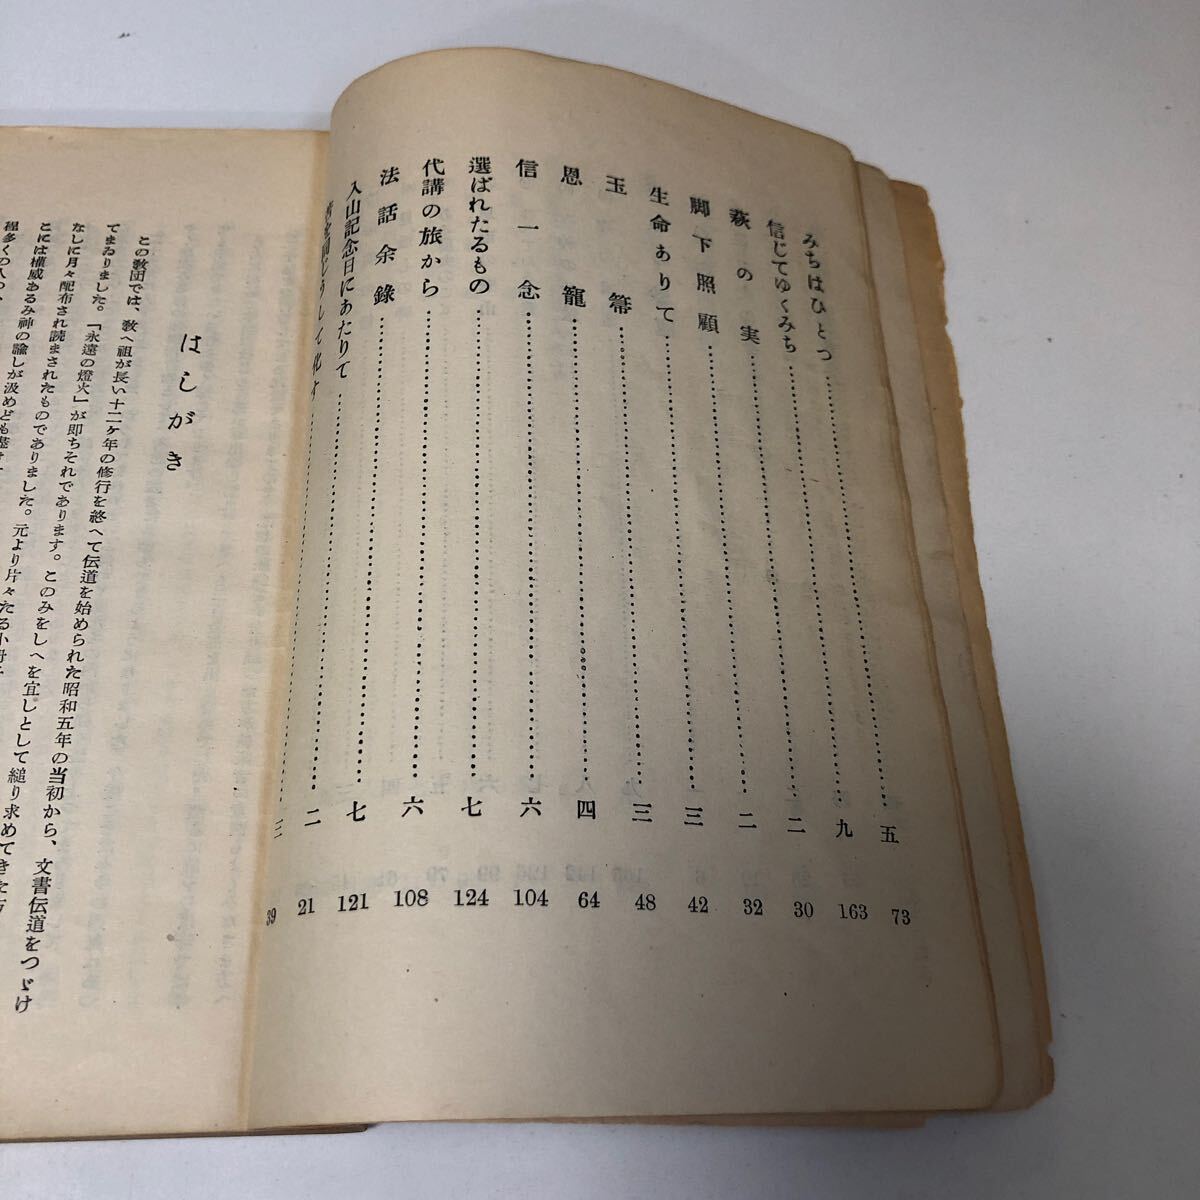 みちはひとつ……五 73
信じてゆくみち……九 163
萩の実……二 30
脚下照顧……二 32
生命ありて……三 42
玉箒……三 48
恩寵……四 64
信一念……六 104
選ばれたるもの……七 124
代講の旅から……六 108
法話余録……七 121
入山記念日にあたりて……二 21
同じうして化す……三 39
はしがき
この教団では、教へ祖が長い十二ケ年の修行を終へて伝道を始められた昭和五年の当初から、文書伝道をつゞけ
てまゐりました。「永遠の燈火」が即ちそれであります。このみをしへを宜じとして縋り求めてきた
なしに月々配布され読まされたものでありました。元より片々たる小冊子
とには権威あるみ神の諭しが汲めども
程多くの人の